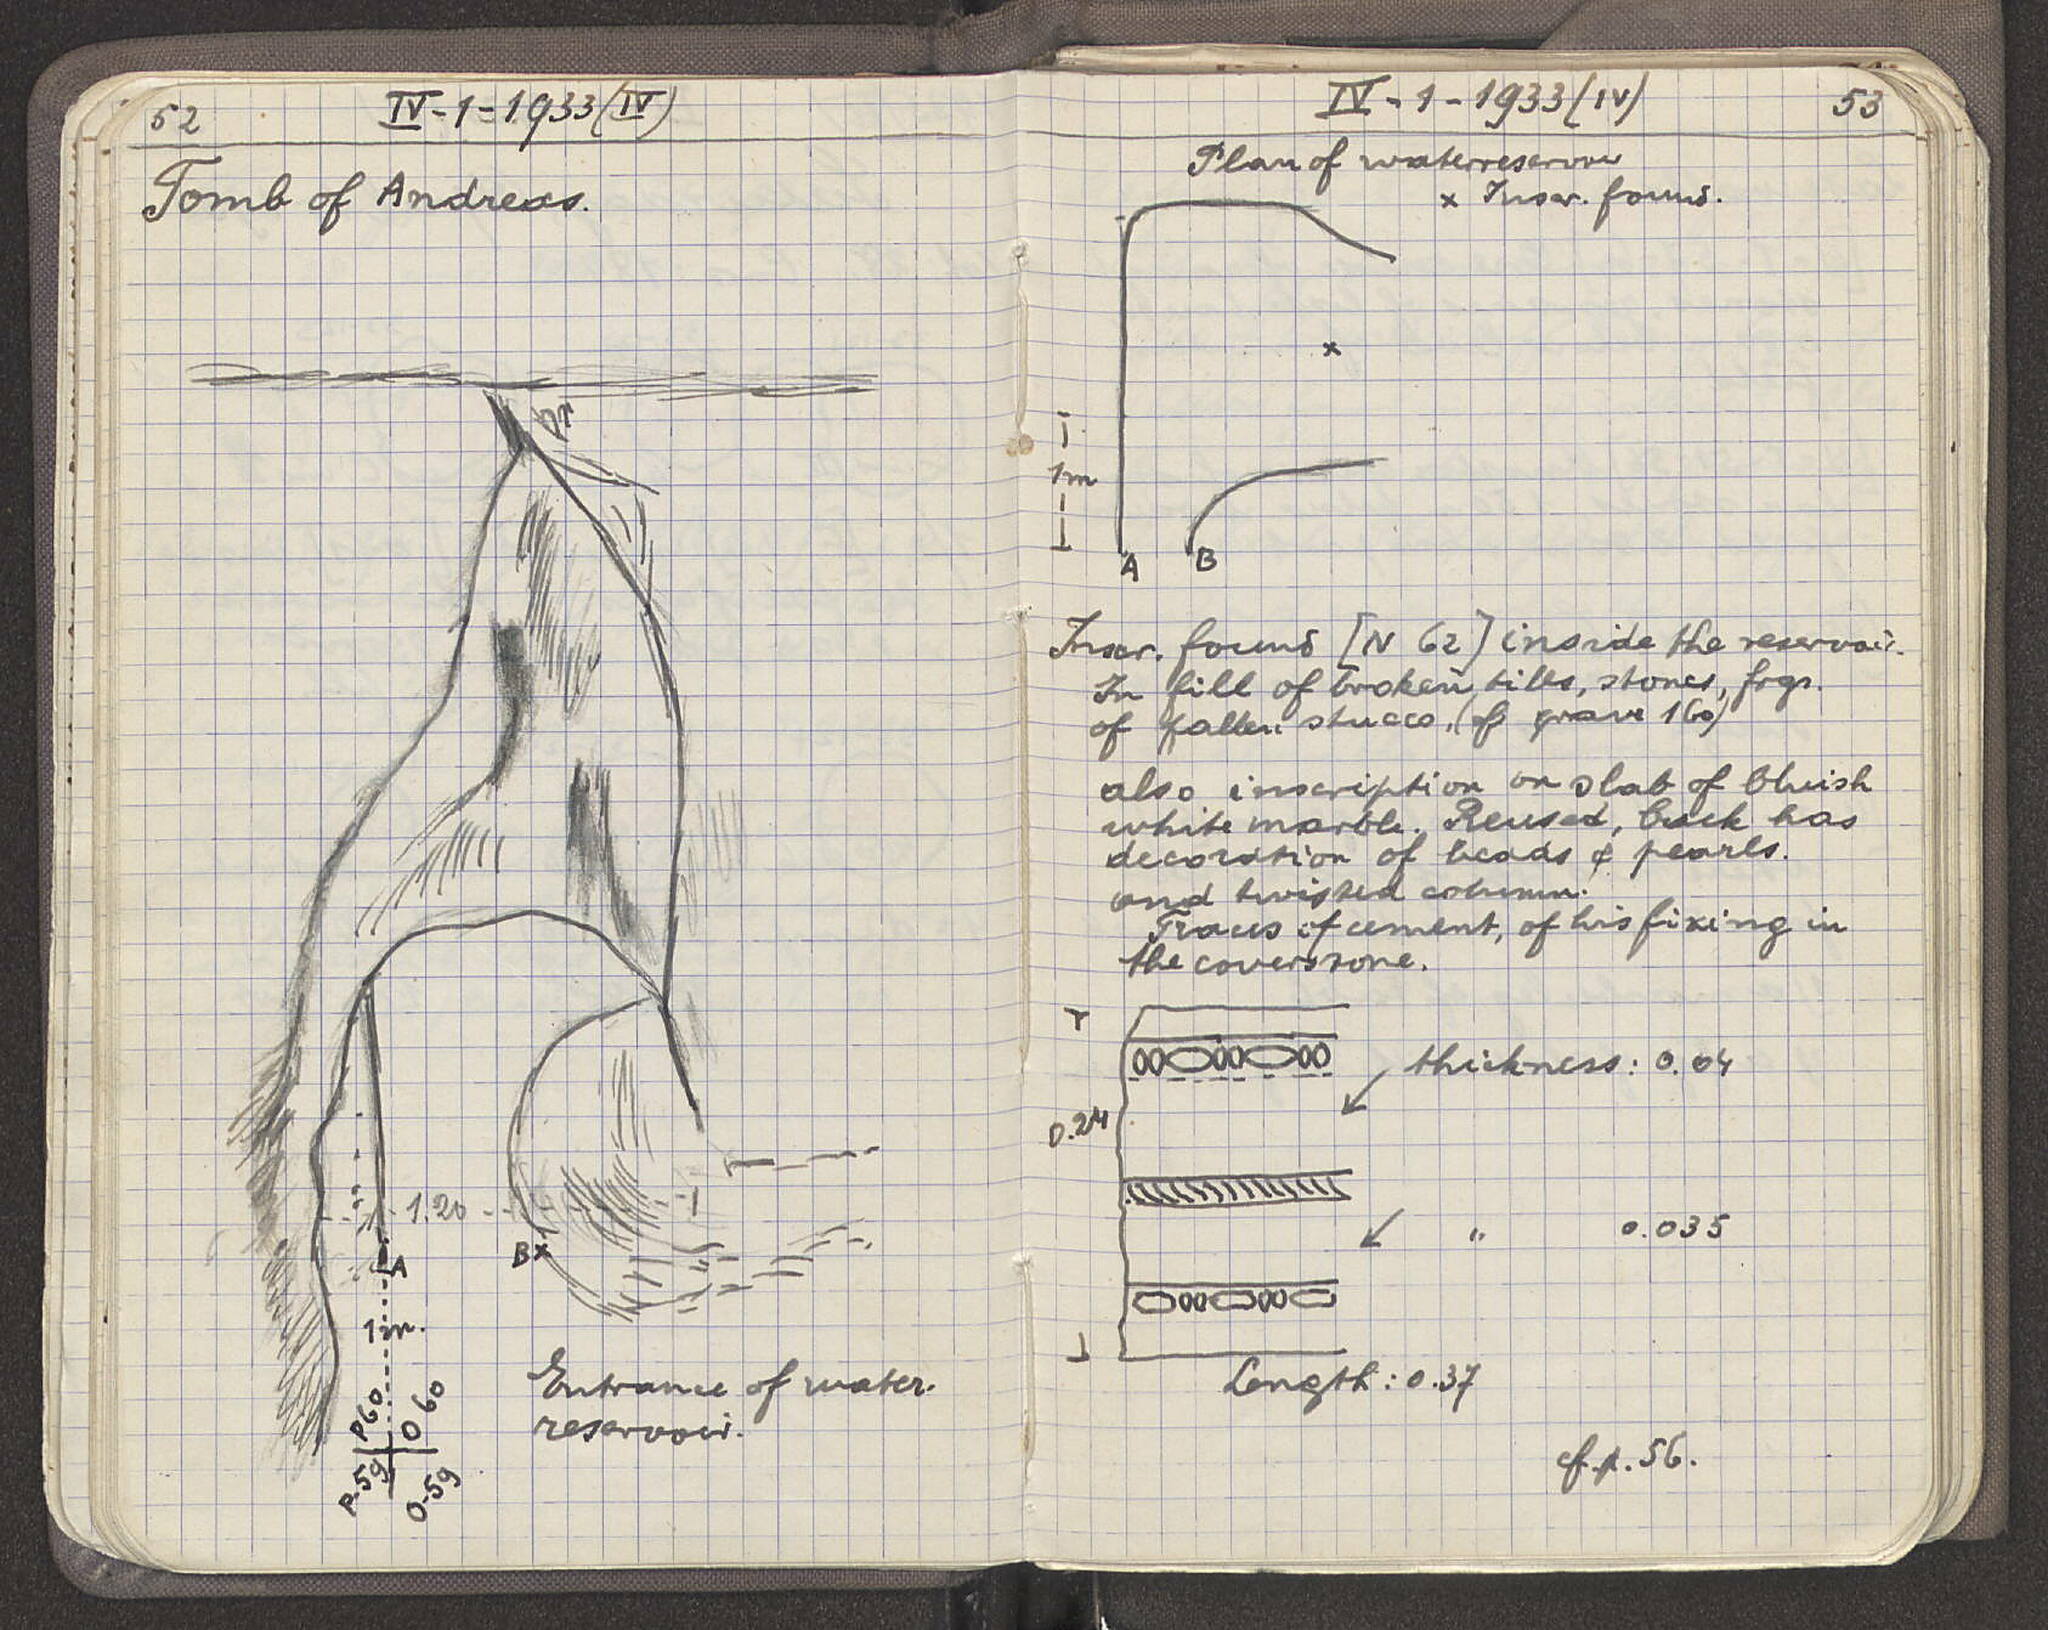 52
IV-1-1933(IV)
Tomb of Andreas.
1.20
A
B x
1m.
P60
O 60
P.59
O-59
Entrance of water.
reservoir.
IV-1-1933(IV)
53
Plan of waterreservoir
x Inscr. found.
x
1m
A
B
Inscr. found [N 62] inside the reservoir.
In fill of broken tiles, stones, frgs.
of fallen stucco. (cf grave 160)
also inscription on slab of bluish
white marble. Reused, back has
decoration of beads & pearls.
and twisted column.
Traces of cement, of his fixing in
the coverstone.
thickness: 0.04
0.24
" 0.035
Length: 0.37
cf. p. 56.